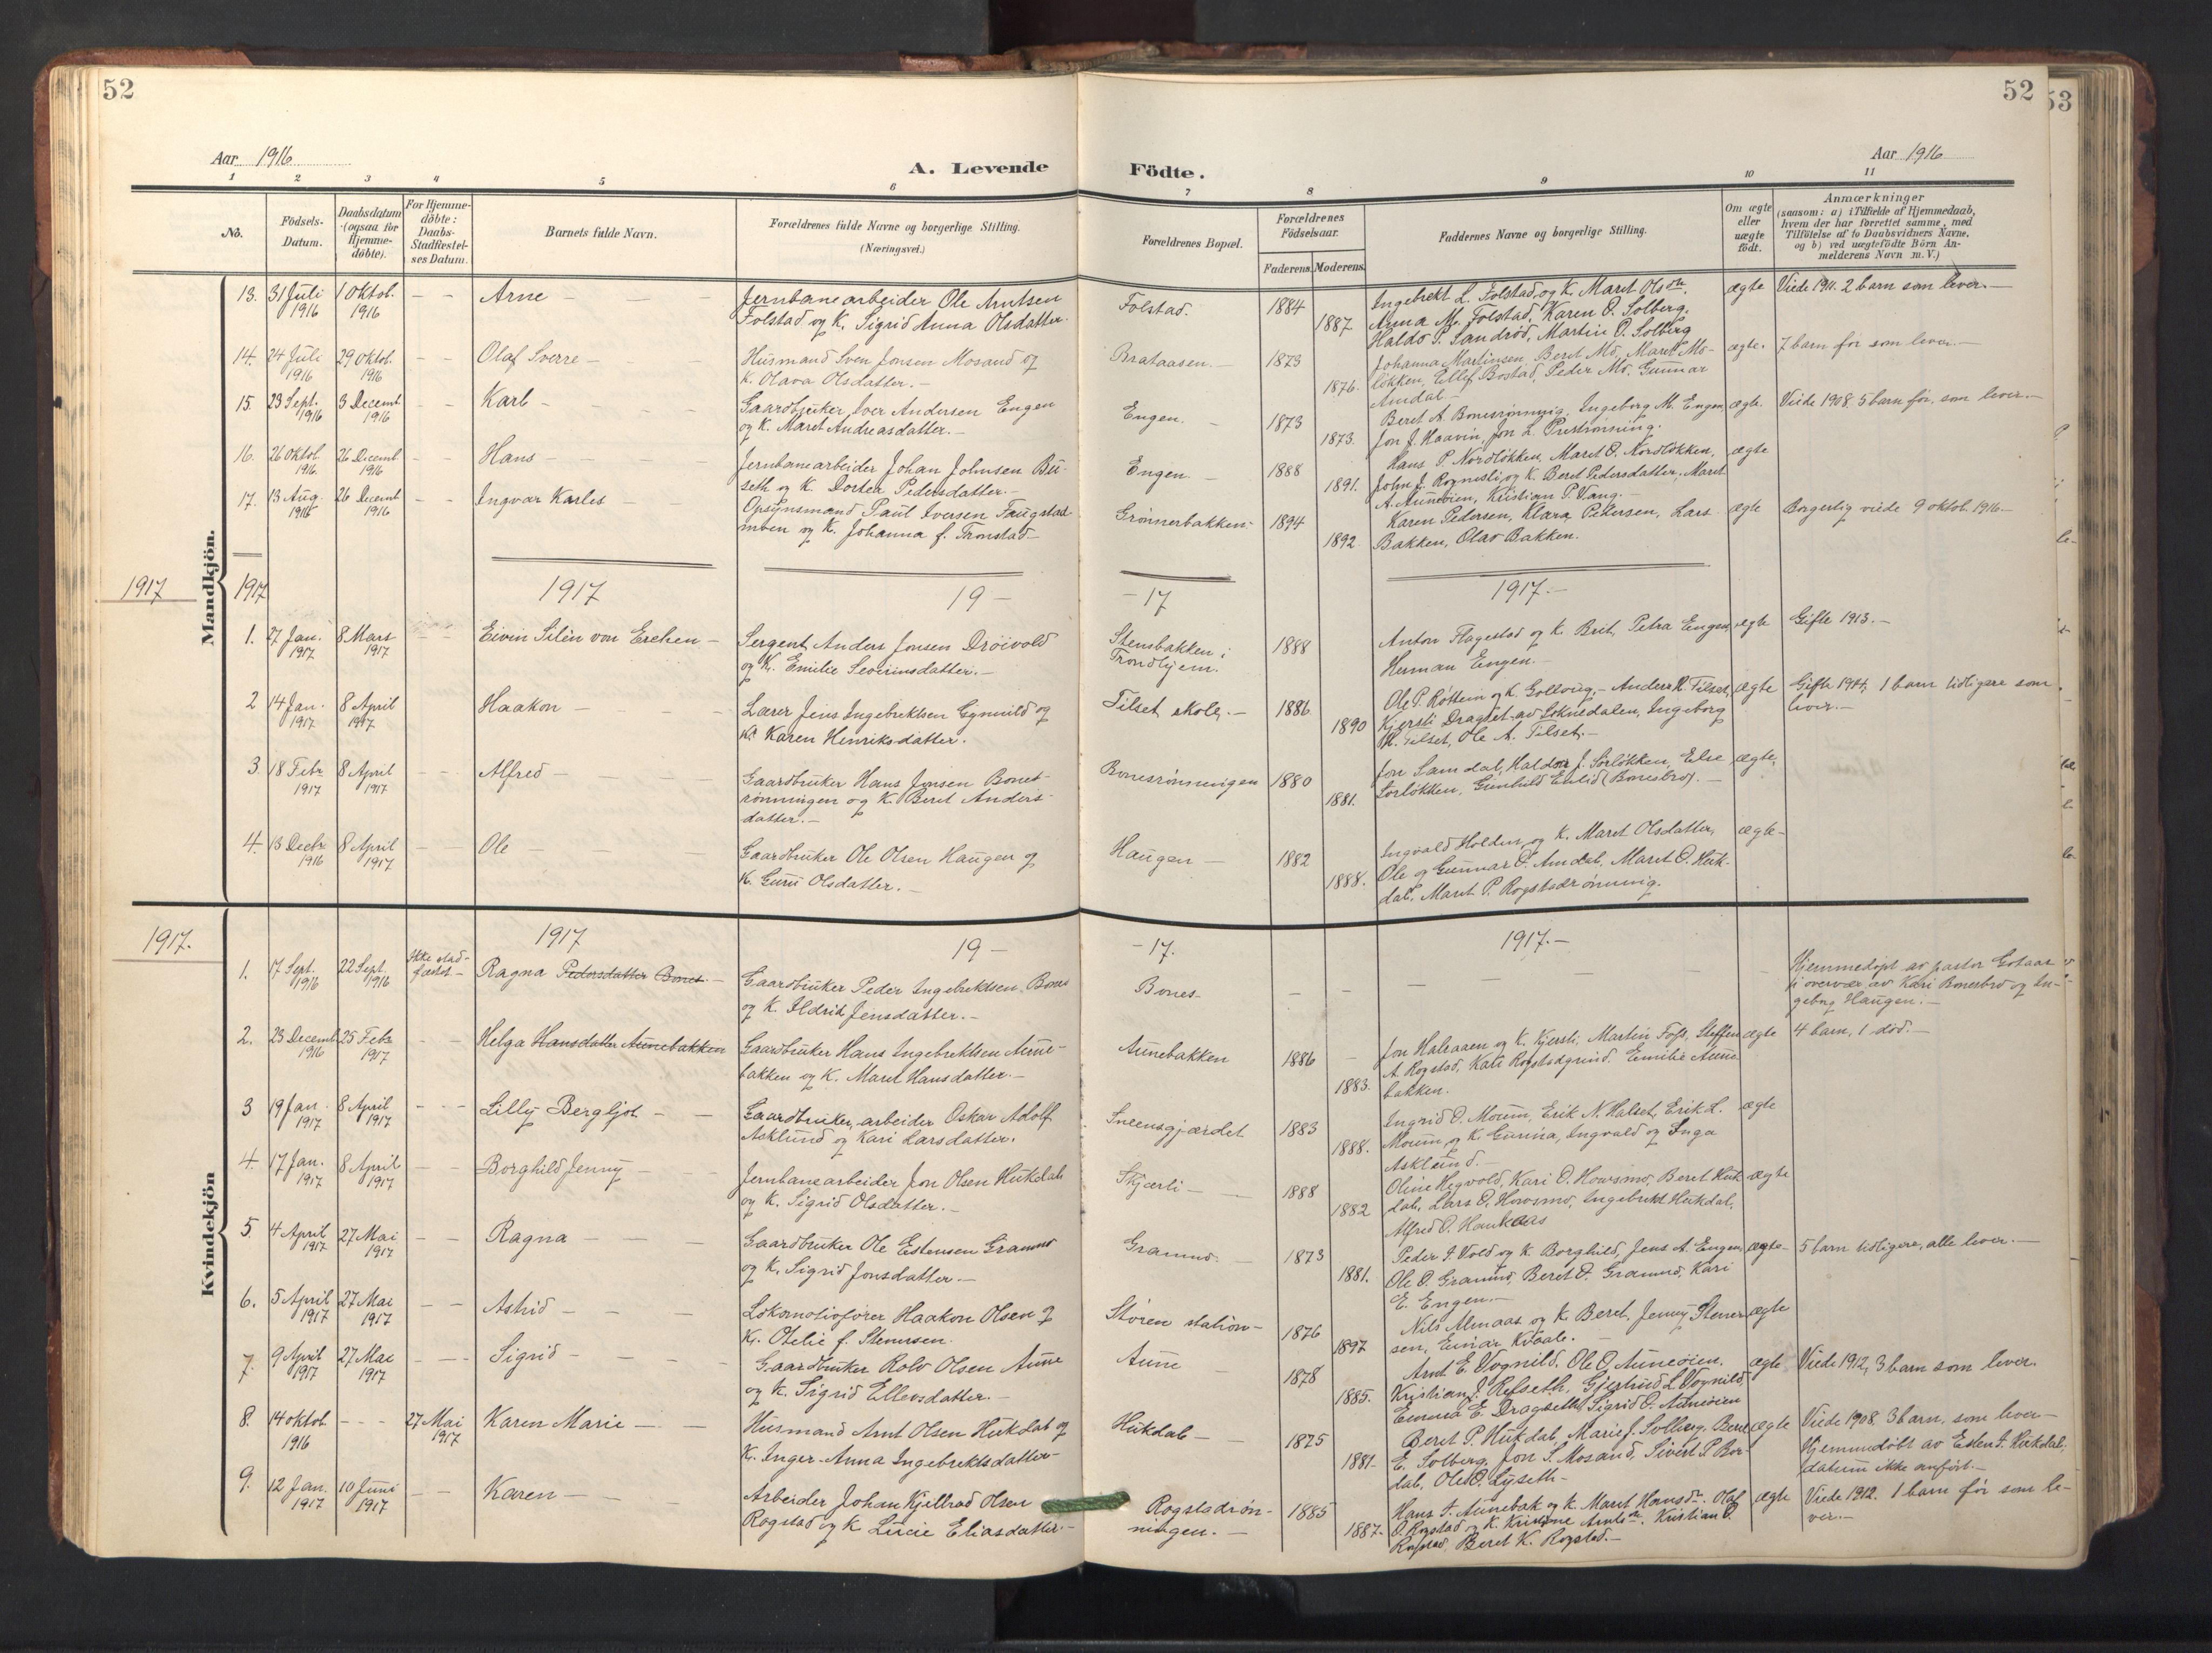 52
52
53
Aar 1916
A. Levende
Födte.
Aar 1916
1 2 3 4 5 6 7 8 9 10 11
No.
Födsels-
Datum.
Daabsdatum
(ogsaa for
Hjemme-
døbte).
For Hjemme-
døbte:
Daabs-
Stadfæstel-
ses Datum.
Barnets fulde Navn.
Forældrenes fulde Navne og borgerlige Stilling.
(Næringsvei.)
Forældrenes Bopæl.
Forældrenes
Födselsaar.
Faderens.
Moderens.
Faddernes Navne og borgerlige Stilling.
Om ægte
eller
uægte
födt.
Anmærkninger
(saasom: a) i Tilfælde af Hjemmedaab,
hvem der har forrettet samme, med
Tilføielse af to Daabsvidners Navne,
og b) ved uægtefödte Börn An-
melderens Navn m. V.)
Mandkjön.
13. 31 Juli 1916
1 Oktob. 1916
Arne
Jernbanearbeider Ole Arntsen
Folstad og K. Sigrid Anna Olsdatter.
Folstad.
1884
1887
Ingebrekt L. Folstad og K. Maret Olsdtr.
Anna M. Folstad, Karen O. Solberg,
Haldo P. Sandrød, Martin P. Solberg
ægte
Viede 1911. 2 barn som lever.
14. 24 Juli 1916
29 Oktob. 1916
Olaf Sverre
Husmand Sven Jonsen Mosand og
K. Olava Olsdatter.
Brataasen.
1873
1876.
Johanna Martinsen, Beret Mo, Maret Mo-
løkken, Ellef Bostad, Peder Mo, Gunnar
Amdal
ægte.
7 barn før som lever.
15. 23 Sept. 1916
3 Decemt 1916
Karl
Gaardbruker Iver Andersen Engen
og K. Maret Andreasdatter.
Engen.
1873
1873.
Beret A. Bonesrønning, Ingeborg M. Engen
Jon J. Haavin, Jon L. Prestrønning.
ægte.
Viede 1908. 5 barn før, som lever.
16. 26 Oktob. 1916.
26 Decemb. 1916
Hans
Jernbanearbeider Johan Johnsen Bu-
seth og K. Dortea Pedersdatter.
Engen
1888
1891.
Hans P. Nordløkken, Maret O. Nordløkken,
John J. Rognesli og K. Beret Pedersdatter, Maret
A. Aunebien, Kristian P. Vang.
ægte
17. 13 Aug. 1916
26 Decemt 1916
Ingvar Karles
Opsynsmand Paul Iversen Faugstad-
moen og K. Johanna f. Tronstad
Grønnerbakken.
1894
1892
Karen Pedersen, Klara Pedersen, Lars
Bakken, Olav Bakken.
ægte
Borgerlig viede 9 oktob. 1916
1917 1917 1917 19 - - 17 1917.-
1. 27 Jan. 1917
8 Mars 1917
Eivin Silén von Erchen
Sergent Anders Jonsen Drøivold
og K. Emilie Severinsdatter.
Stensbakken i
Trondhjem.
1888
Anton Flagestad og K. Brit, Petra Engen,
Herman Engen.
ægte
Gifte 1913.
2 14 Jan. 1917
8 April 1917
Haakon
Lærer Jens Ingebrektsen Gynnild og
K. Karen Henriksdatter.
Tilset skole.
1886
1890
Ole P. Røttem og K. Gollaug, Anders K. Tilset,
Kjersti Dragset av Soknedalen, Ingeborg
M. Tilset, Ole A. Tilset.
ægte
Gifte 1914, 1 barn tidligere som
lever.
3 18 Febr 1917
8 April 1917
Alfred
Gaardbruker Hans Jensen Bones-
rønningen og K. Beret Anders-
datter.
Bonesrønningen
1880
1881.
Jon Samdal, Haldor J. Sorløkken, Else
Sorløkken, Gunhild Enlid (Bonesbro).
ægte.
4. 13 Decbr 1916
8 April 1917
Ole
Gaardbruker Ole Olsen Haugen og
K. Guru Olsdatter.
Haugen
1882
1888.
Ingvald Holden og K. Maret Olsdatter,
Ole og Gunnar O. Amdal, Maret O. Huk-
dal, Maret P. Rogstadrønning.
ægte
Kvindekjön
1917. 1917 19 - - 17. 1917.-
1. 17 Sept. 1916
22 Sept. 1916
Ikke stad-
fæstet
Ragna Pedersdatter Bones.
Gaardbruker Peder Ingebrektsen Bones
og K. Ildrid Jensdatter.
Bones
Hjemmedøpt av pastor Gotaas
i overvær av Kari Bonesbro og In-
geborg Haugen.
2. 23 Decemb 1916
25 Febr 1917
Helga Hansdatter Aunebakken
Gaardbruker Hans Ingebrektsen Aune-
bakken og K. Maret Hansdatter.
Aunebakken
1886
1883.
Jon Halraaen og K. Kjersti, Martin Foss, Steffen
A. Rogstad, Kari Rogstadgrind, Emilie Aune-
bakken.
ægte
4 barn, 1 død.
3 19 Jan. 1917
8 April 1917
Lilly Bergljot
Gaardbruker, arbeider Oskar Adolf
Asklund og Kari Larsdatter.
Sneensgjærdet
1883
1888.
Ingrid O. Moum, Erik N. Halset, Erik L.
Moum og K. Gurina, Ingvald og Inga
Asklund.
ægte
4. 17 Jan. 1917
8 April 1917
Borghild Jenny
Jernbanearbeider Jon Olsen Hukdal
og K. Sigrid Olsdatter.
Skjærli
1888
1882
Oline Hegvold, Kari O. Hovsmo, Beret Huk-
dal, Lars O. Hovsmo, Ingebrekt Hukdal,
Alfred O. Haukaas
ægte
5. 4 April 1917
27 Mai 1917
Ragna
Gaardbruker Ole Estensen Gramno
og K. Sigrid Jonsdatter.
Gramno.
1873
1881.
Peder I. Vold og K. Borghild, Jens A. Engen,
Ole O. Gramno, Beret O. Gramno, Kari
E. Engen.
ægte
5 barn tidligere, alle lever.
6. 5 April 1917
27 Mai 1917
Astrid
Lokomotivfører Haakon Olsen og
K. Otelie f. Stenersen.
Støren station
1876
1897
Nils Almaas og K. Beret, Jenny Stener-
sen, Einar Kvaale.
ægte
7. 9 April 1917
27 Mai 1917
Sigrid
Gaardbruker Rolv Olsen Aune
og K. Sigrid Ellevsdatter.
Aune
1878
1885.
Arnt E. Vognild, Ole O. Auneøien,
Kristian J. Refseth, Gjertrud L. Vognild,
Emma E. Dragseth, Sigrid O. Auneøien
ægte
Viede 1912, 3 barn som lever.
8. 14 oktob. 1916
27 Mai 1917
Karen Marie
Husmand Arnt Olsen Hukdal og
K. Inger-Anna Ingebrektsdatter
Hukdal
1875
1881
Beret P. Hukdal, Marie J. Solberg, Beret
E. Solberg, Jon S. Mosand, Sivert P. Bor-
dal, Ole O. Lyseth
ægte
Viede 1908. 3 barn, som lever
Hjemmedøbt av Esten I. Hukdal,
datum ikke anført.
9. 12 Jan. 1917
10 Juni 1917
Karen
Arbeider Johan Kjellrad Olsen
Rogstad og K. Lucie Eliasdatter.
Rogstadrøn-
ningen.
1885
1887.
Hans I. Aunebak og K. Maret Hansdr. Olaf
O. Rogstad og K. Kristine Arntsdr. Kristian O.
Rogstad, Beret K. Rogstad.
ægte
Viede 1912. 1 barn før som le-
ver.